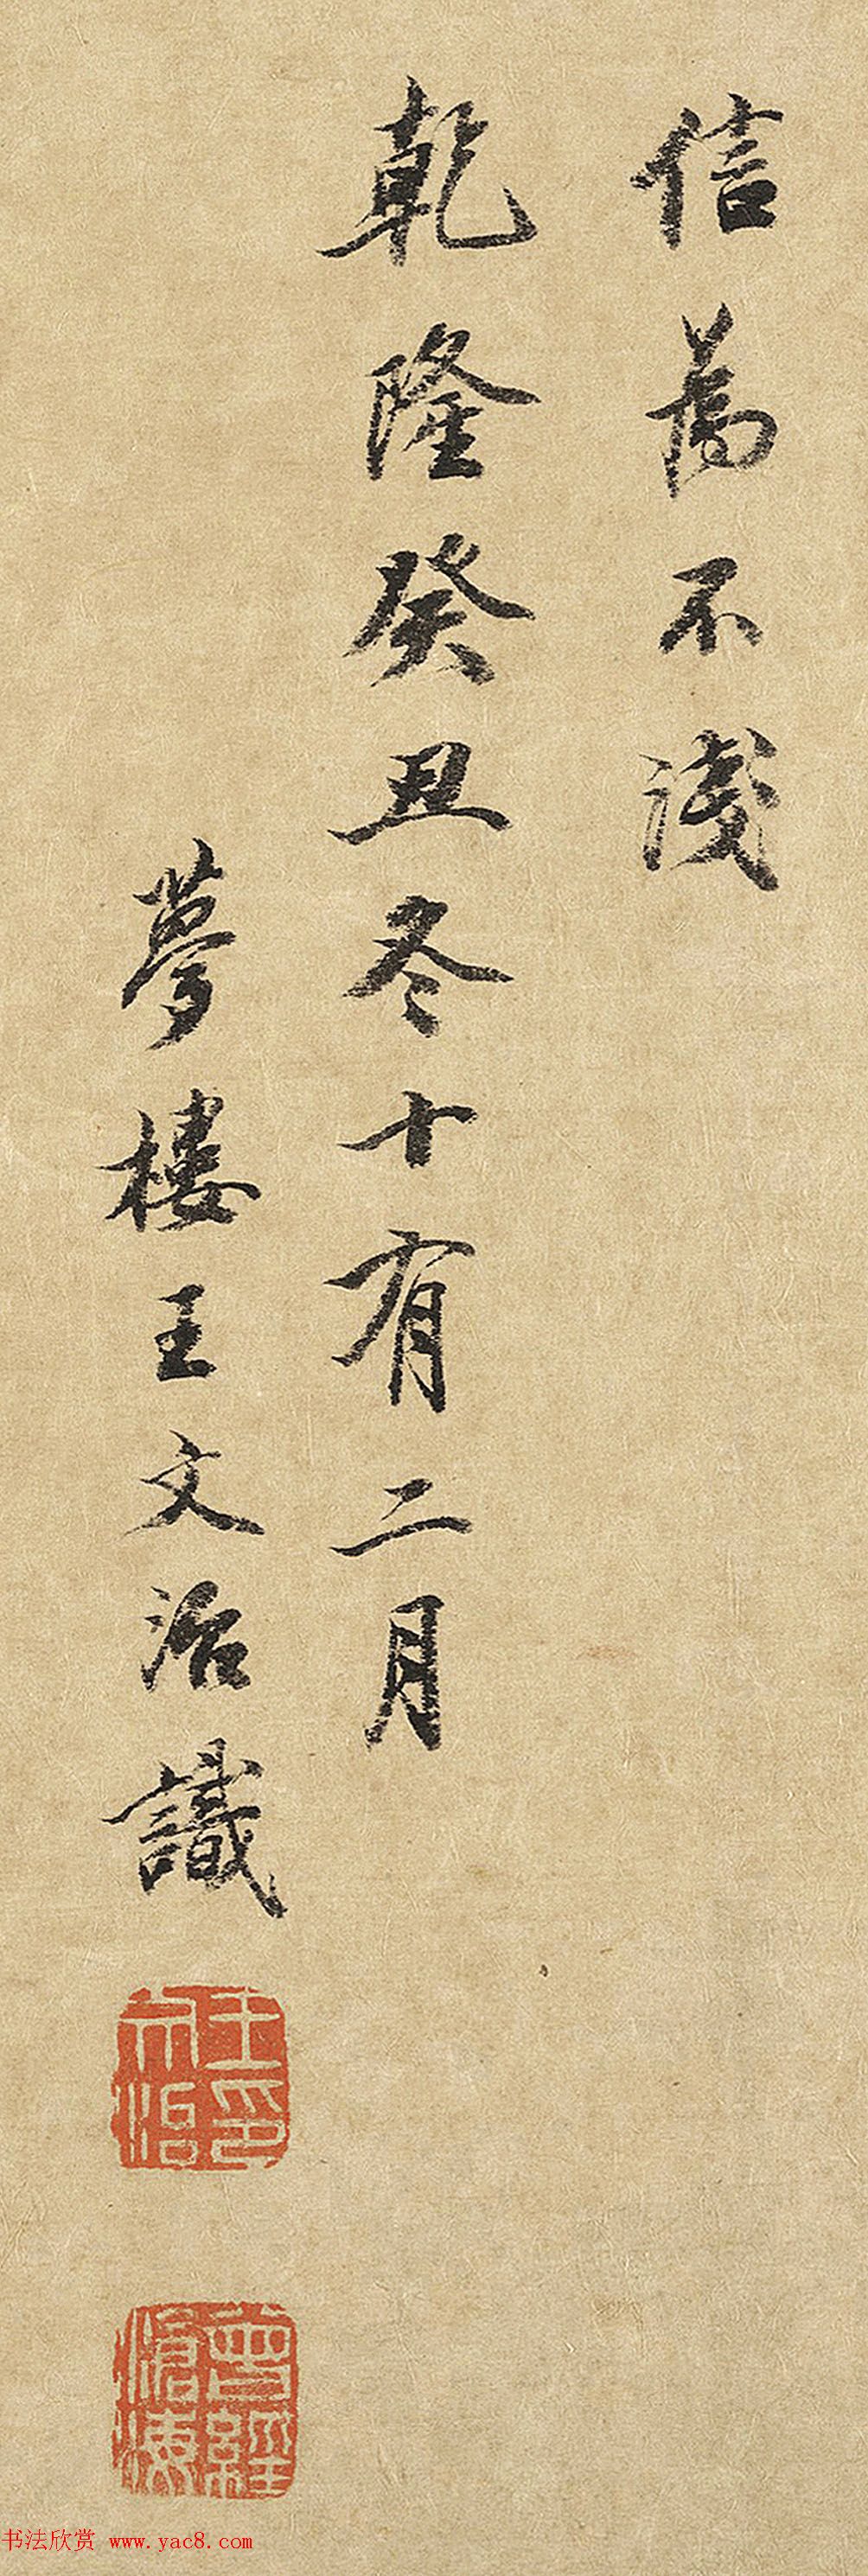 信為不淺
乾隆癸丑冬十有二月
夢樓王文治識
王文治印
曾經滄海
书法欣赏 www.yac8.com